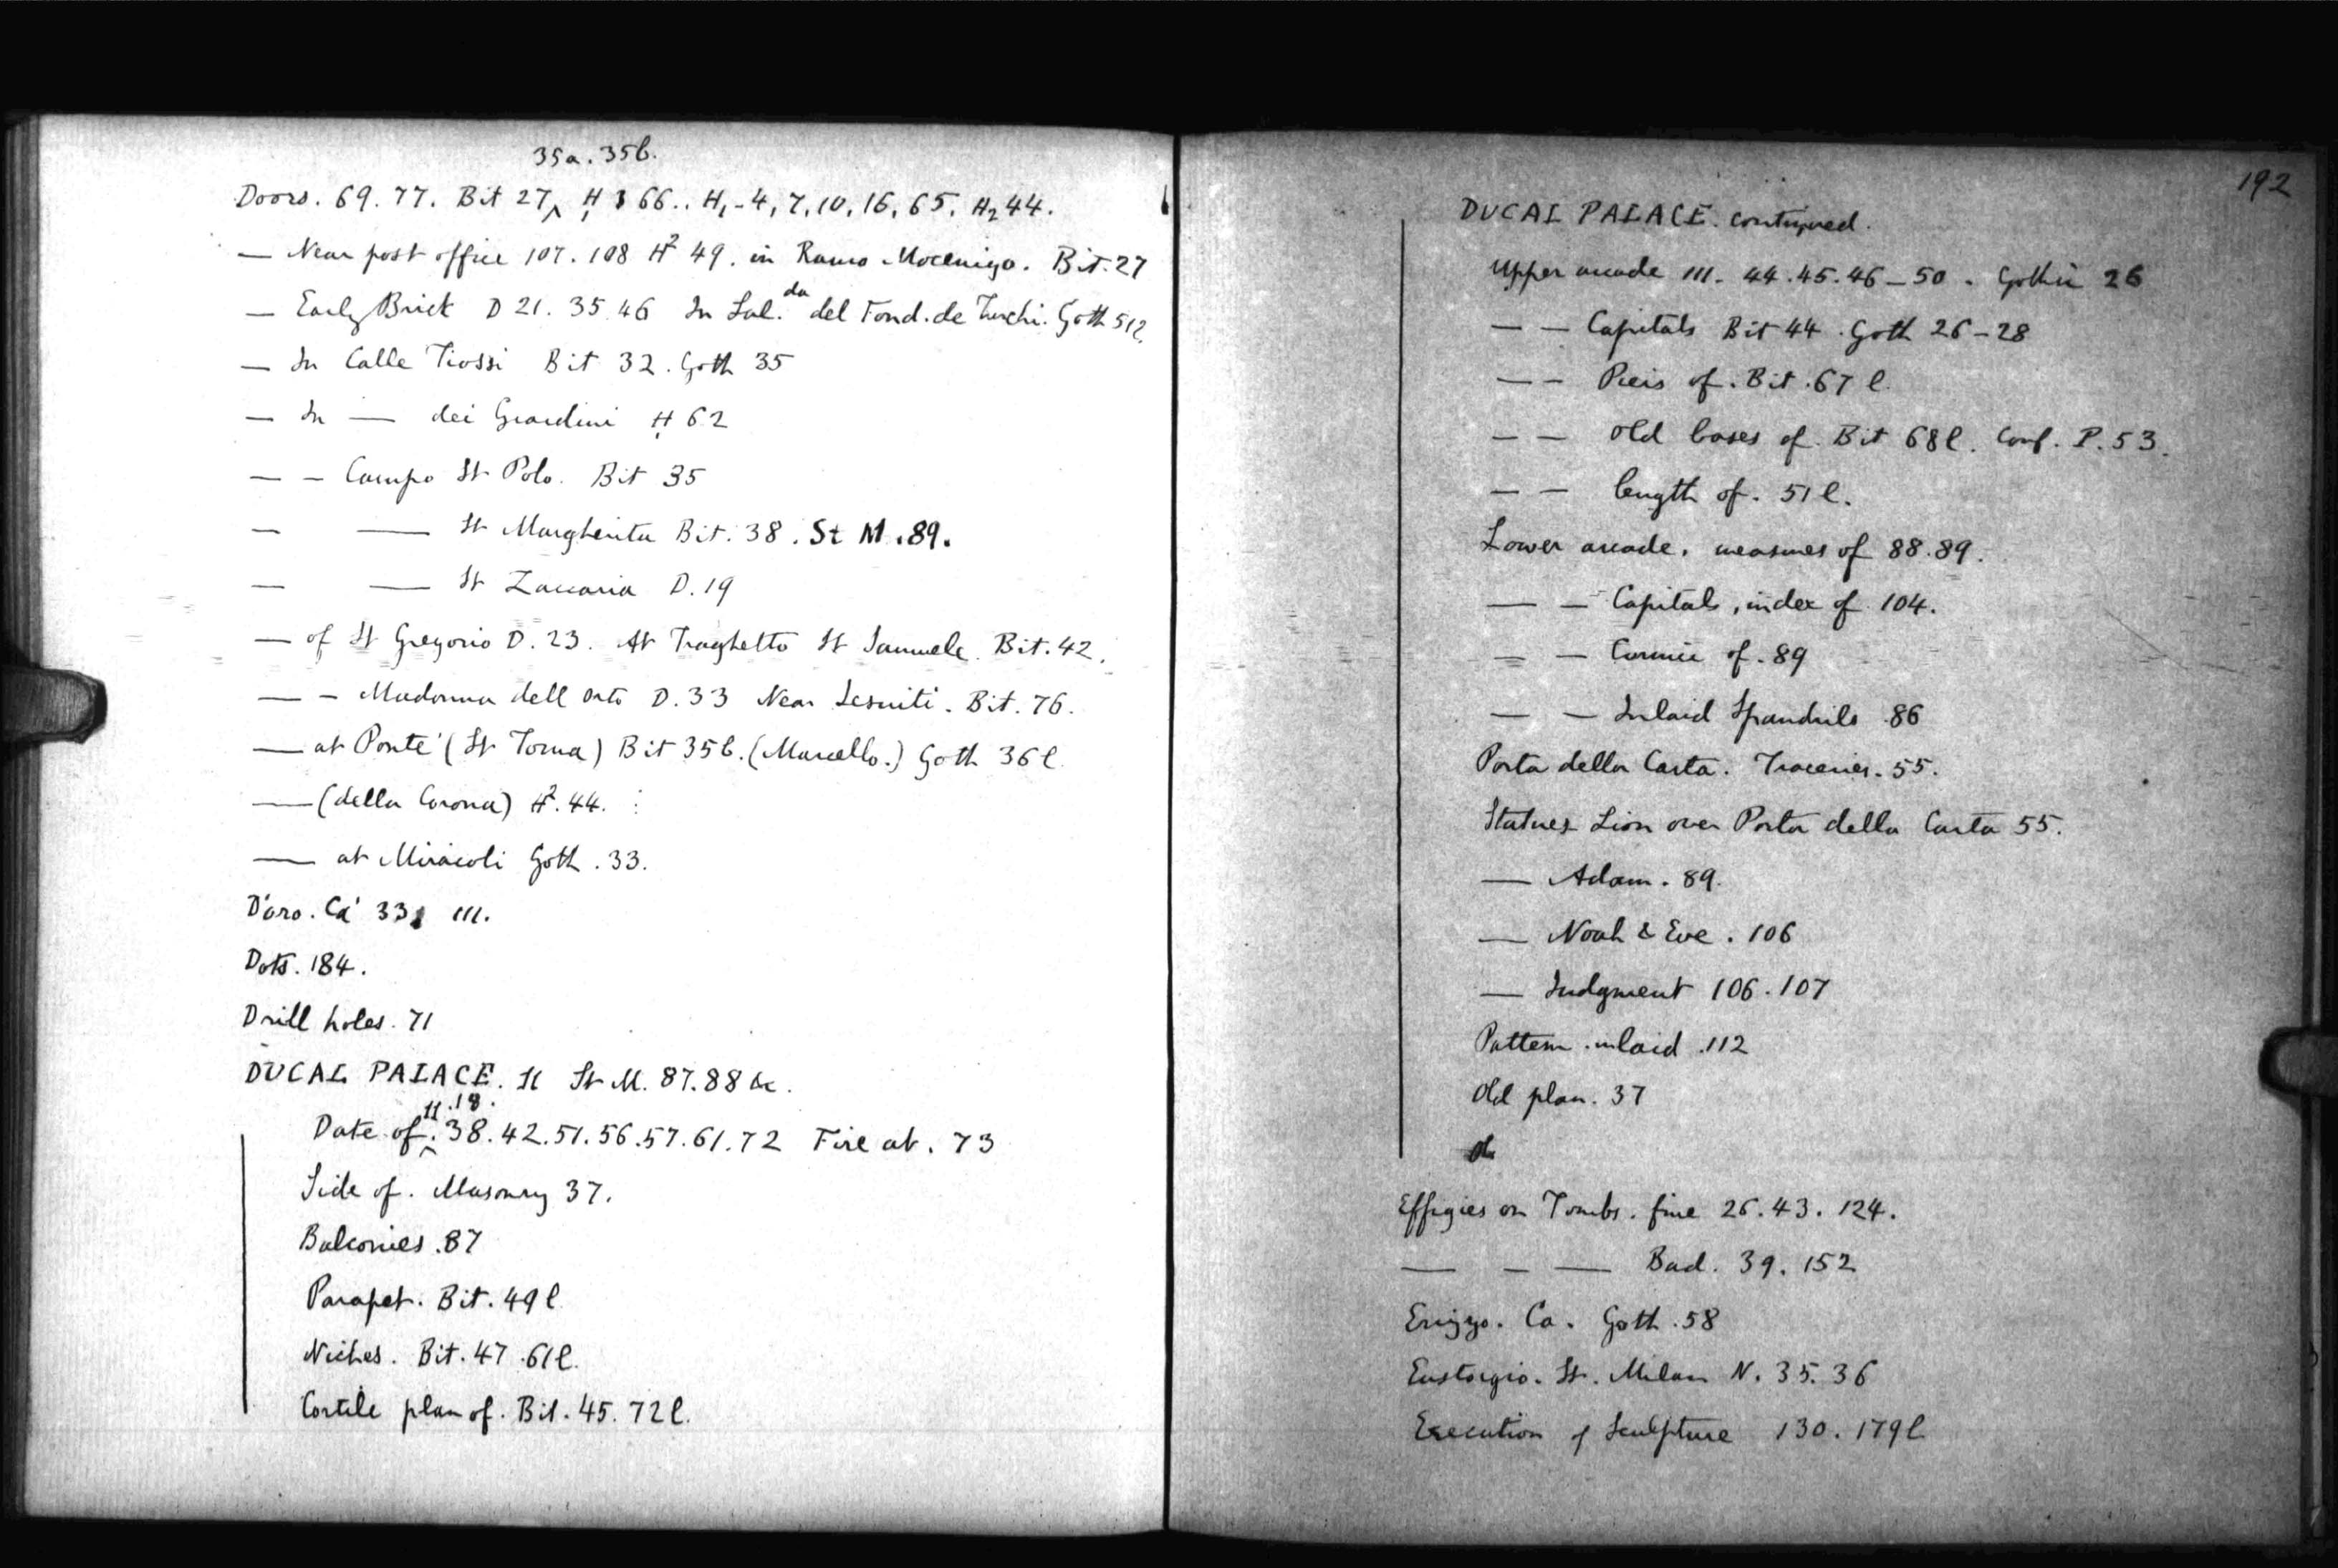 35a. 35b.
Doors. 69. 77. Bit 27, H 66.. H, - 4, 7, 10, 16, 65. H2 44.
— Near post office 107. 108 H2 49. in Ramo Mocenigo. Bit. 27
da
— Early Brick D 21. 35. 46 In Sal. del Fond. de Turchi. Goth 51l.
— In Calle Tiossi Bit 32. Goth 35
— In — dei Giardini H 62
— — Campo St Polo. Bit 35
— — St Margherita Bit. 38. St M. 89.
— — St Zaccaria D. 19
— of St Gregorio D. 23. At Traghetto St Samuele. Bit. 42.
— — Madonna dell orto D. 33 Near Jesuiti. Bit. 76.
— at Ponte (St Toma) Bit 35b. (Marcello.) Goth 36 l
— (della Corona) H2. 44.
— at Miracoli Goth. 33.
D'oro. Ca' 33, 111.
Dots. 184.
Drill holes. 71
DUCAL PALACE. St M. 87. 88 &c.
H. 18.
Date of. 38. 42. 51. 56. 57. 61. 72 Fire at. 73
Side of. Masonry 37.
Balconies. 87
Parapet. Bit. 49 l
Niches. Bit. 47. 61 l.
Cortile plan of. Bit. 45. 72 l.
192
DUCAL PALACE. continued.
Upper arcade 111. 44. 45. 46 – 50. Gothic 26
— — Capitals Bit 44. Goth 26 – 28
— — Piers of. Bit. 67 l
— — Old bases of Bit 68 l. Conf. P. 53.
— — length of. 51 l.
Lower arcade. measures of 88. 89.
— — Capitals, index of 104.
— — Cornice of. 89
— — Inlaid Spandrils 86
Porta della Carta. Traceries. 55.
Statues Lion over Porta della Carta 55.
— Adam. 89.
— Noah & Eve. 106
— Judgment 106. 107
Pattern inlaid. 112
Old plan. 37
Effigies on Tombs. fine 26. 43. 124.
— — — Bad. 39. 152
Erizzo. Ca. Goth. 58
Eustorgio. St. Milan N. 35. 36
Execution of Sculpture 130. 179 l